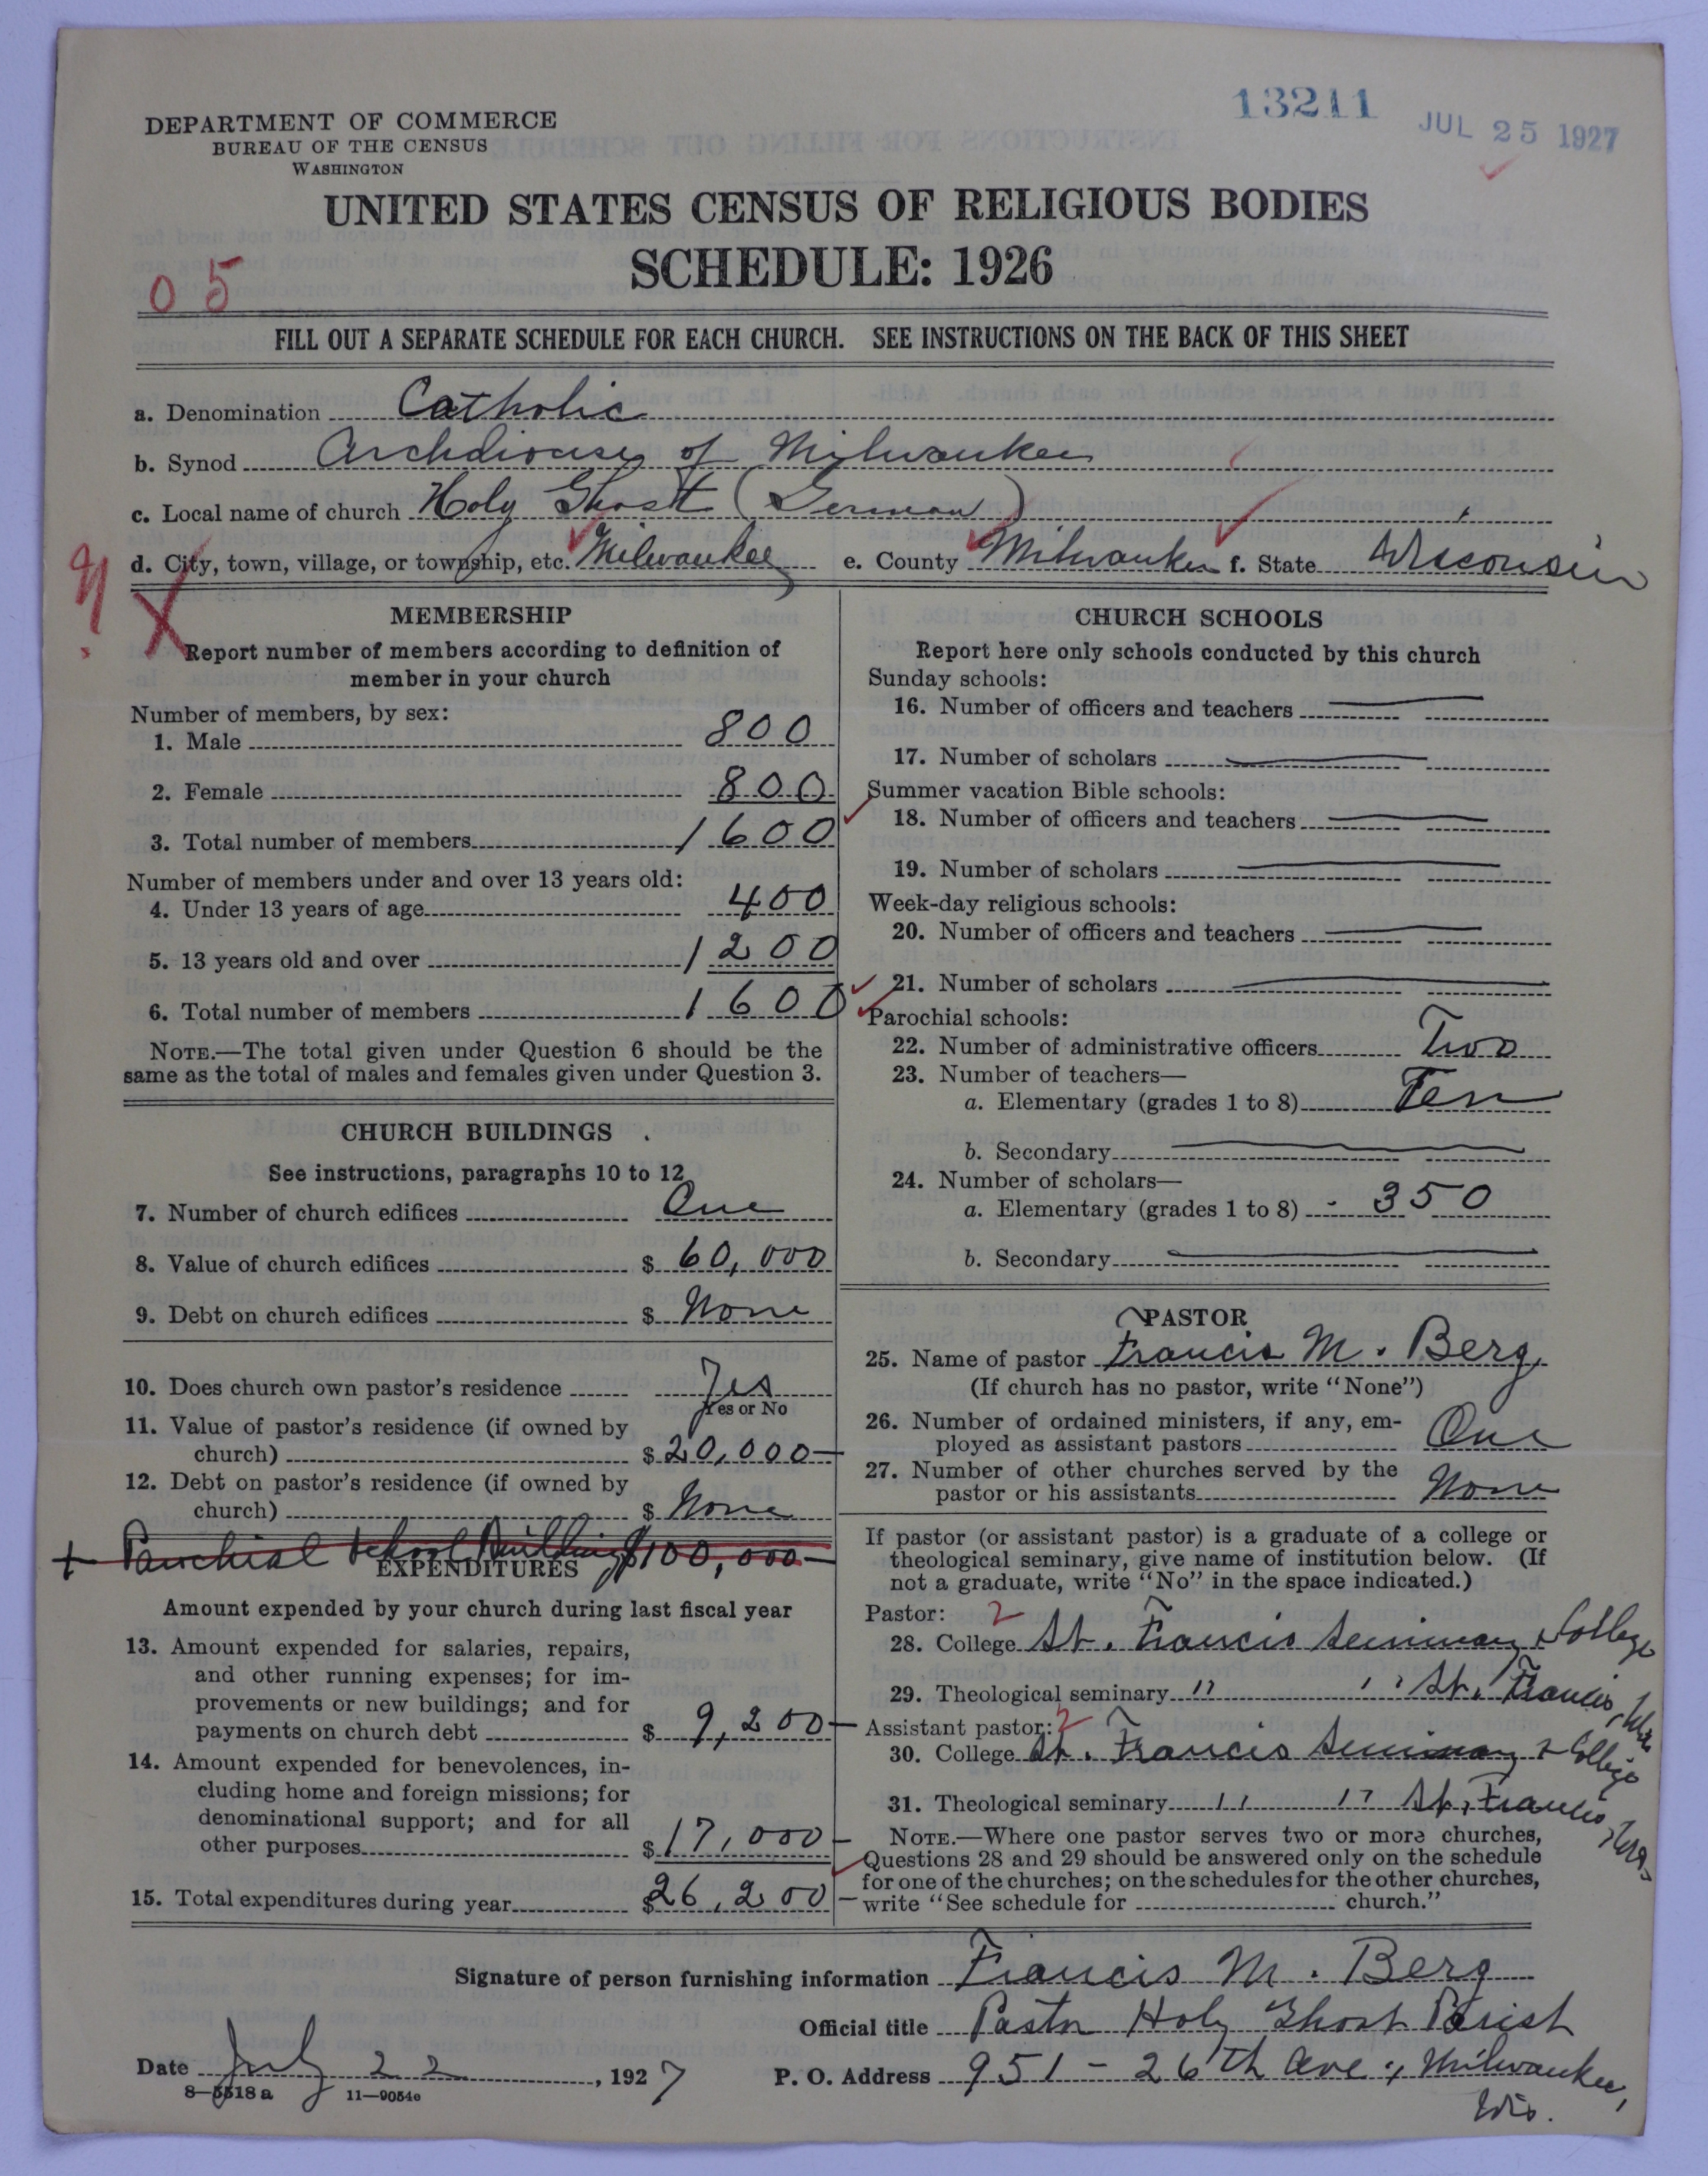 13211
JUL 25 1927
DEPARTMENT OF COMMERCE
BUREAU OF THE CENSUS
WASHINGTON
UNITED STATES CENSUS OF RELIGIOUS BODIES
SCHEDULE: 1926
05
FILL OUT A SEPARATE SCHEDULE FOR EACH CHURCH. SEE INSTRUCTIONS ON THE BACK OF THIS SHEET
a. Denomination Catholic
b. Synod Archdiocese of Milwaukee
c. Local name of church Holy Ghost (German)
d. City, town, village, or township, etc. Milwaukee e. County Milwaukee f. State Wisconsin
MEMBERSHIP
Report number of members according to definition of
member in your church
Number of members, by sex:
1. Male 800
2. Female 800
3. Total number of members 1600
Number of members under and over 13 years old:
4. Under 13 years of age 400
5. 13 years old and over 1200
6. Total number of members 1600
NOTE.—The total given under Question 6 should be the
same as the total of males and females given under Question 3.
CHURCH BUILDINGS
See instructions, paragraphs 10 to 12
7. Number of church edifices One
8. Value of church edifices $ 60,000
9. Debt on church edifices $ None
10. Does church own pastor's residence Yes
Yes or No
11. Value of pastor's residence (if owned by
church) $ 20,000—
12. Debt on pastor's residence (if owned by
church) $ None
+ Parochial School Building $100,000—
EXPENDITURES
Amount expended by your church during last fiscal year
13. Amount expended for salaries, repairs,
and other running expenses; for im-
provements or new buildings; and for
payments on church debt $ 9,200—
14. Amount expended for benevolences, in-
cluding home and foreign missions; for
denominational support; and for all
other purposes $ 17,000—
15. Total expenditures during year $ 26,200—
CHURCH SCHOOLS
Report here only schools conducted by this church
Sunday schools:
16. Number of officers and teachers
17. Number of scholars
Summer vacation Bible schools:
18. Number of officers and teachers
19. Number of scholars
Week-day religious schools:
20. Number of officers and teachers
21. Number of scholars
Parochial schools:
22. Number of administrative officers Two
23. Number of teachers—
a. Elementary (grades 1 to 8) Ten
b. Secondary
24. Number of scholars—
a. Elementary (grades 1 to 8) 350
b. Secondary
PASTOR
25. Name of pastor Francis M. Berg
(If church has no pastor, write "None")
26. Number of ordained ministers, if any, em-
ployed as assistant pastors One
27. Number of other churches served by the
pastor or his assistants None
If pastor (or assistant pastor) is a graduate of a college or
theological seminary, give name of institution below. (If
not a graduate, write "No" in the space indicated.)
Pastor: 2
28. College St. Francis Seminary & College
29. Theological seminary " " St. Francis, Wis.
Assistant pastor: 2
30. College St. Francis Seminary & College
31. Theological seminary " " St. Francis, Wis.
NOTE.—Where one pastor serves two or more churches,
Questions 28 and 29 should be answered only on the schedule
for one of the churches; on the schedules for the other churches,
write "See schedule for church."
Signature of person furnishing information Francis M. Berg
Official title Pastor Holy Ghost Parish
Date July 22, 1927 P. O. Address 951 - 26th Ave., Milwaukee,
Wis.
8—5518 a 11—9054o